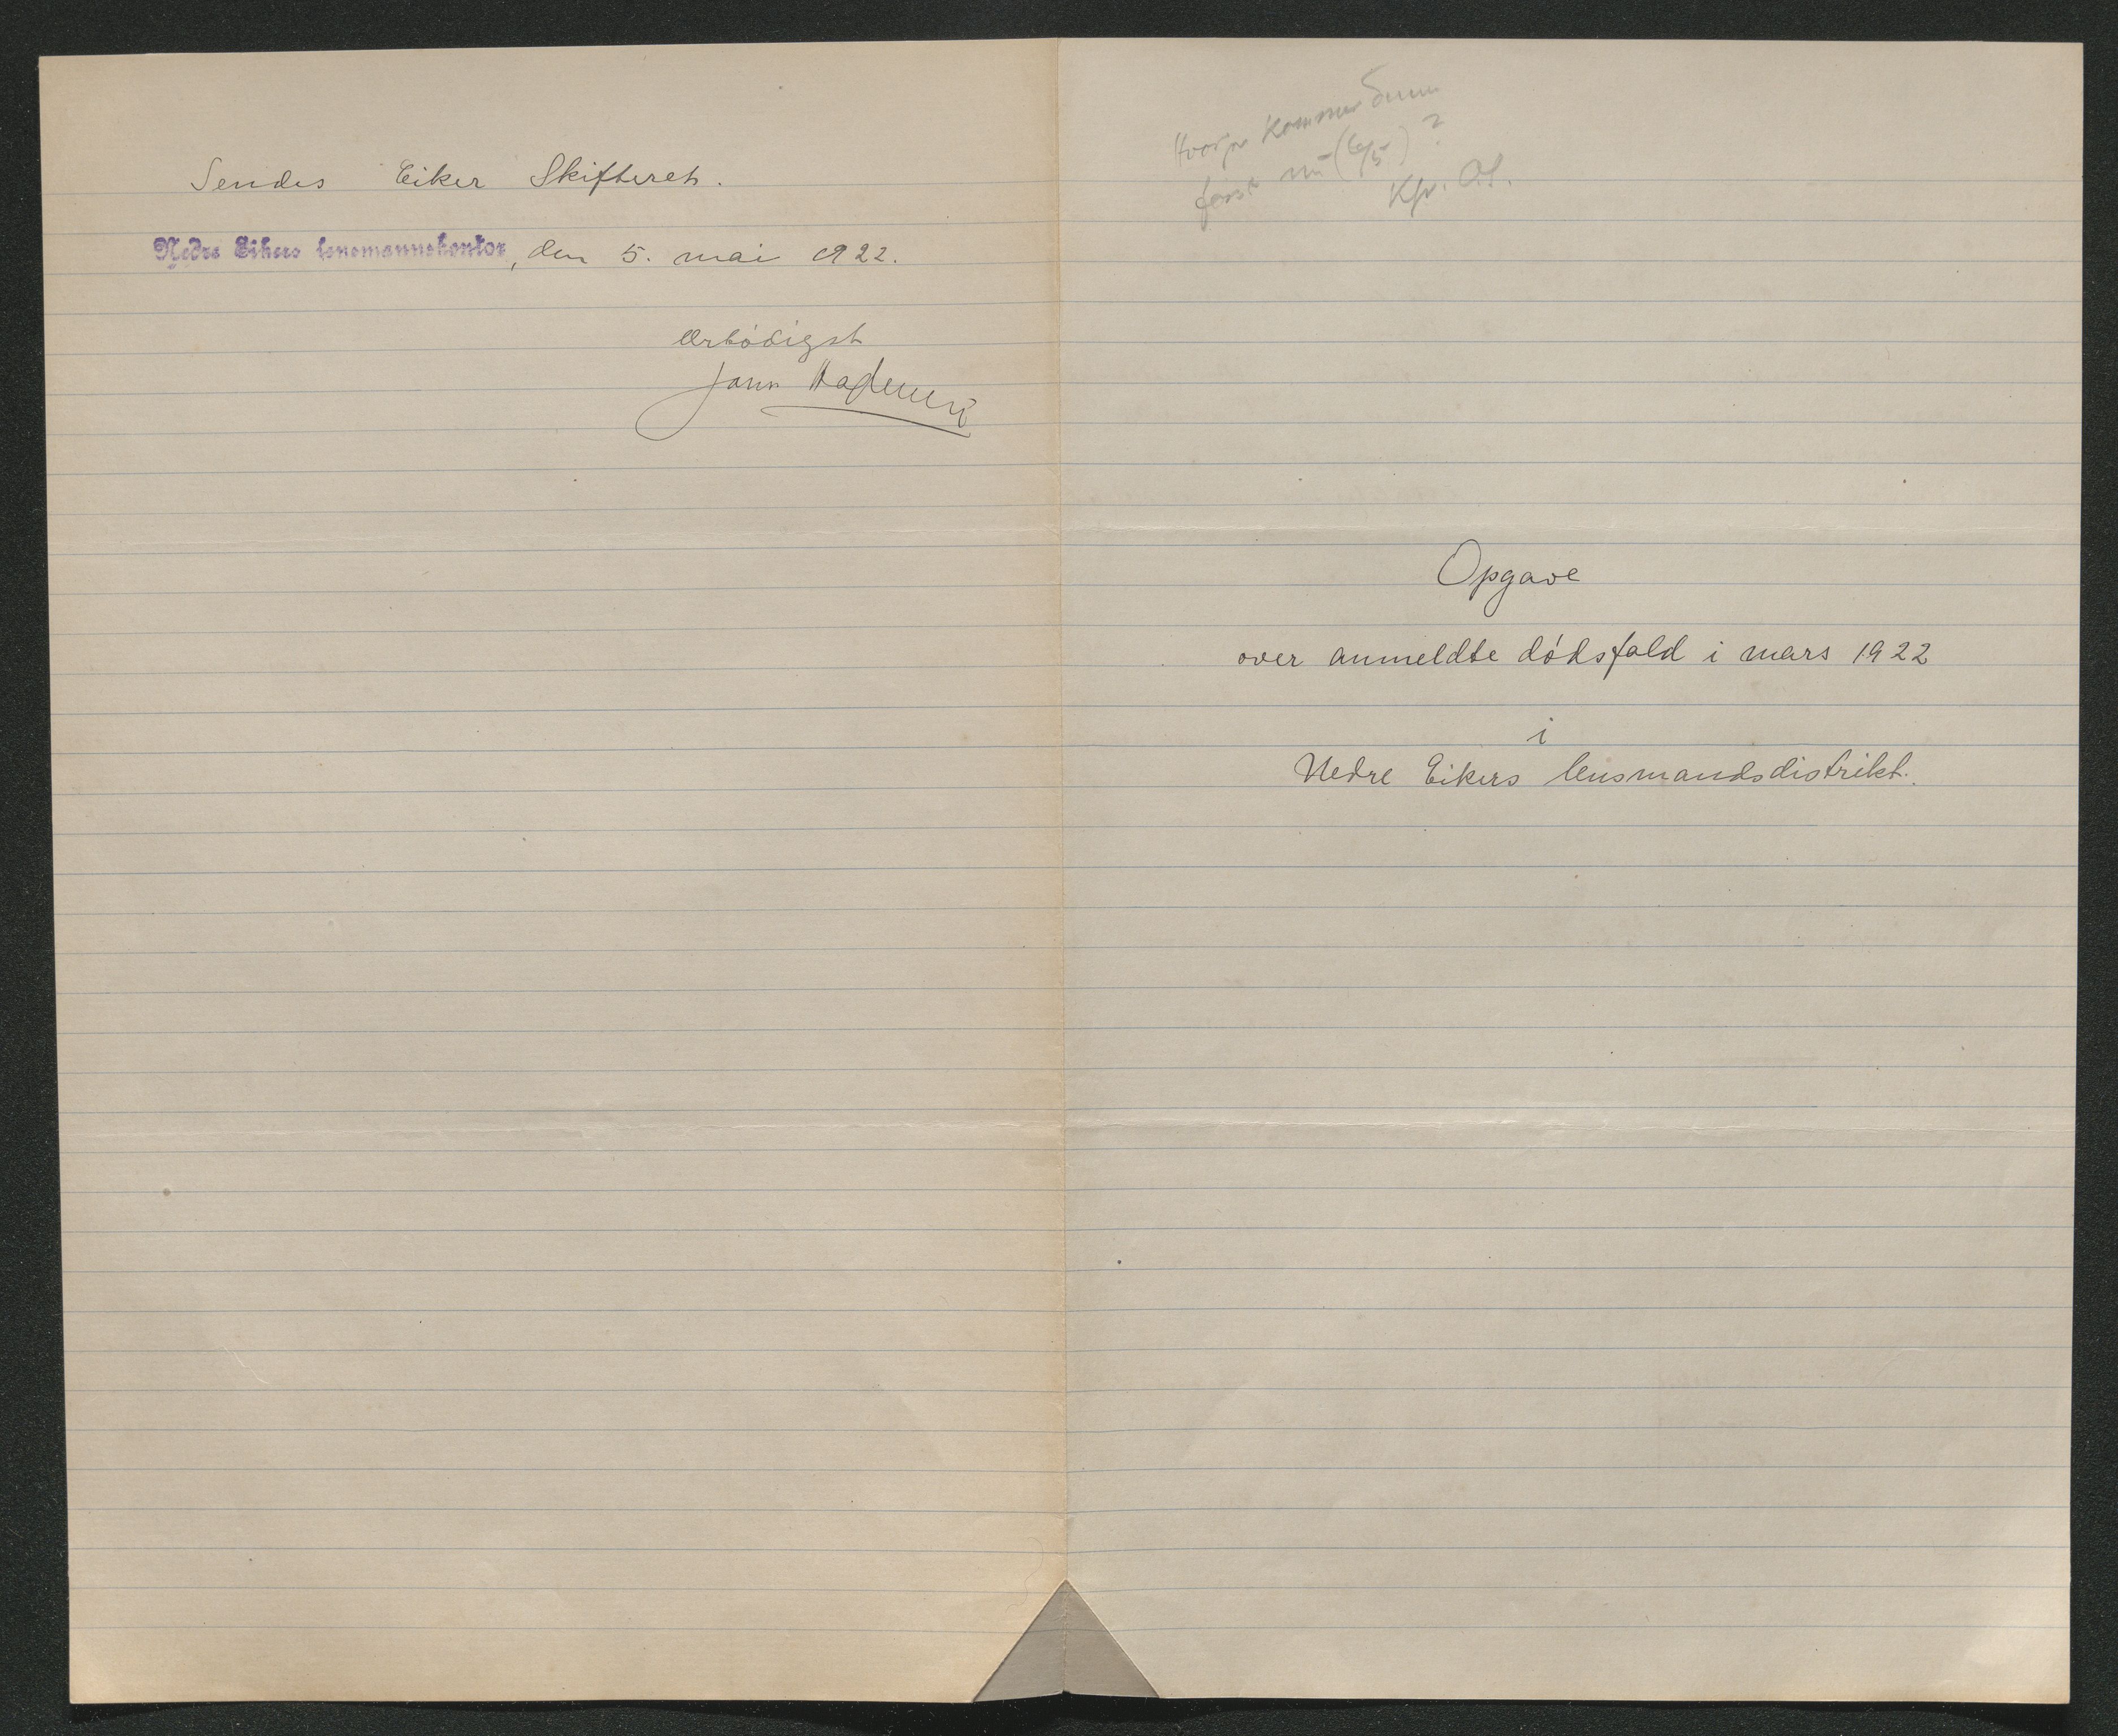 Sendes Eiker Skifteret.
Nedre Eikers lensmannskontor, den 5. mai 1922.
Ærbødigst
Hvorfor kommer denne
først nu (6/5) ?
Kfr.
Opgave
over anmeldte dødsfald i mars 1922
i
Nedre Eikers lensmandsdistrikt.